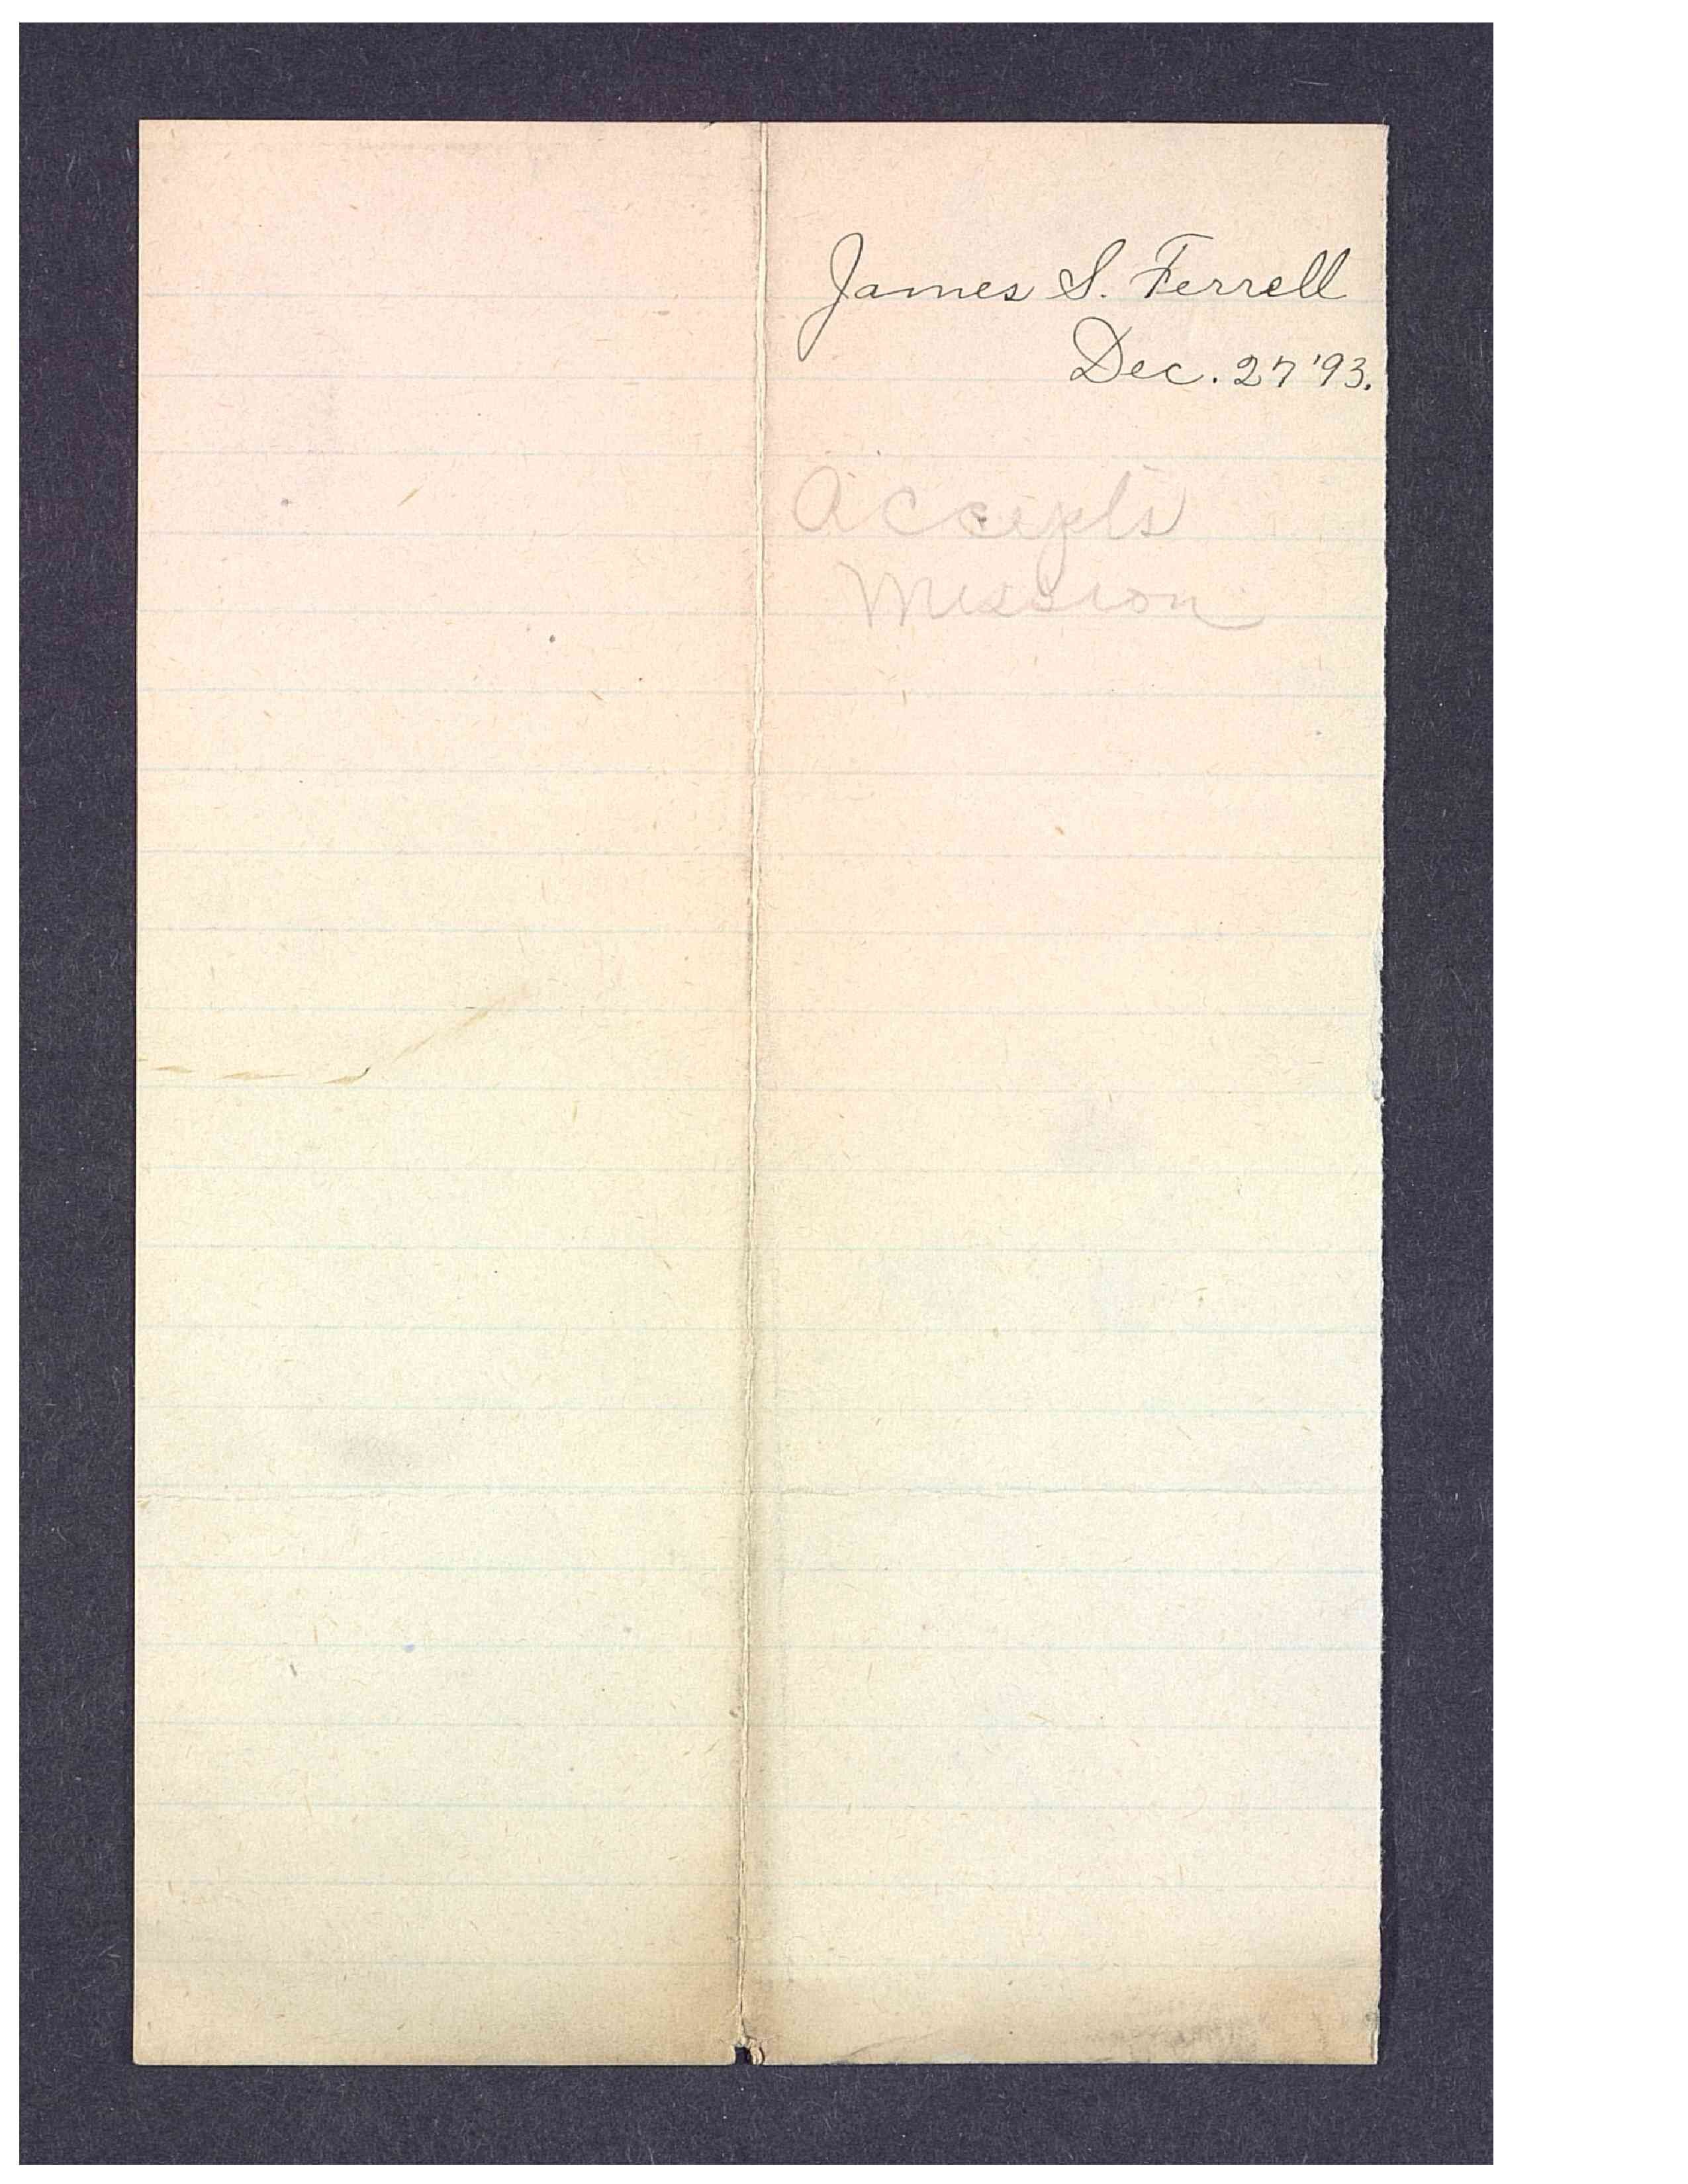 James S. Ferrell
Dec. 27 '93.
Accepts
Mission